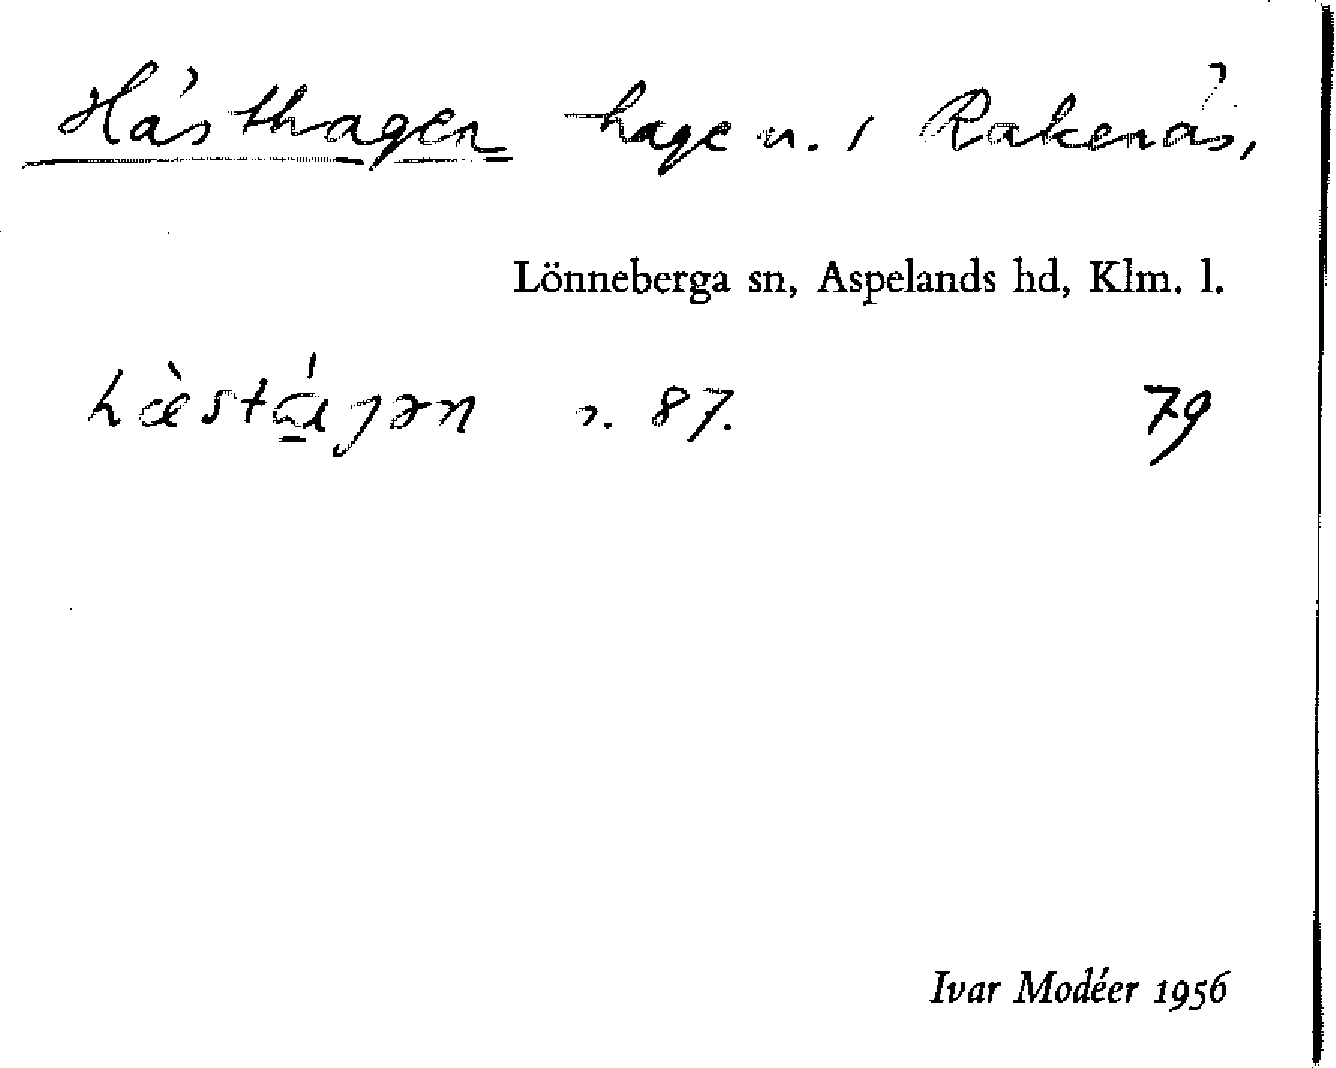 Hästhagen hage n. i Rakenäs,
Lönneberga sn, Aspelands hd, Klm. l.
hæ̀stá̱gən s. 87. 79
Ivar Modéer 1956